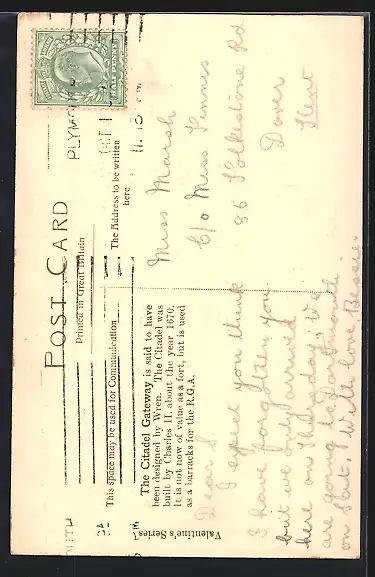 POST CARD
Printed in Great Britain
This space may be used for Communication
The Address to be written
here
PLYMO
OCT 1
11.15
HALF PENNY
The Citadel Gateway is said to have
been designed by Wren. The Citadel was
built by Charles II. about the year 1670.
It is not now of value as a fort, but is used
as a barracks for the R.G.A.
Valentine's Series
Dear S.
I expect you think
I have forgotten you
but we only arrived
here on Thursday. We
are going to Falmouth
on Sat. With love Bessie.
Miss Marsh
C/o Miss Finnis
86 Folkestone Rd
Dover
Kent